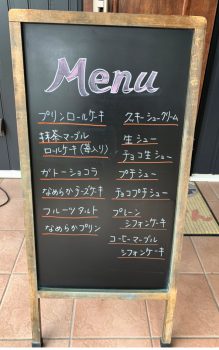 Menu
プリンロールケーキ
抹茶マーブル
ロールケーキ(苺入り)
ガトーショコラ
なめらかチーズケーキ
フルーツタルト
なめらかプリン
スキーシュークリーム
生シュー
チョコ生シュー
プチシュー
チョコプチシュー
プレーン
シフォンケーキ
コーヒーマーブル
シフォンケーキ